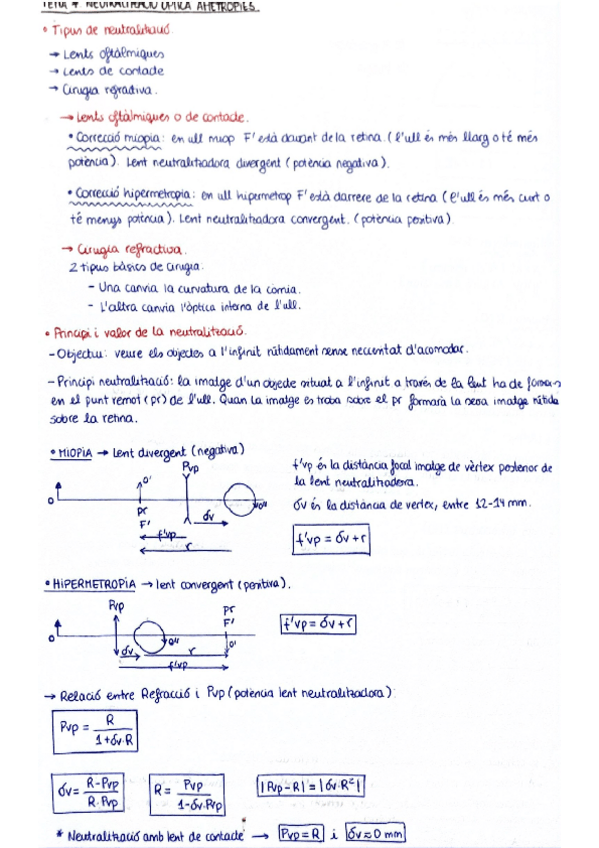 TEMA 4 NEUTRALITZACIÓ ÒPTICA AMETROPIES.
• Tipus de neutralització
→ Lents oftàlmiques
→ Lents de contacte
→ Cirugia refractiva.
→ Lents oftàlmiques o de contacte.
• Correcció miopia: en ull miop F' està davant de la retina. (l'ull és més llarg o té més
potència). Lent neutralitzadora divergent (potència negativa).
• Correcció hipermetropia: en ull hipermetrop F' està darrere de la retina (l'ull és més curt o
té menys potència). Lent neutralitzadora convergent. (potència positiva)
→ Cirugia refractiva.
2 tipus bàsics de cirugia.
- Una canvia la curvatura de la còrnia.
- L'altra canvia l'òptica interna de l'ull.
• Principi i valor de la neutralització.
- Objectiu: veure els objectes a l'infinit nítidament sense necessitat d'acomodar.
- Principi neutralització: la imatge d'un objecte situat a l'infinit a través de la lent ha de formars
en el punt remot (pr) de l'ull. Quan la imatge es troba sobre el pr formarà la seva imatge nítida
sobre la retina.
• MIOPIA → Lent divergent (negativa)
Pvp
f'vp és la distància focal imatge de vèrtex posterior de
la lent neutralitzadora.
δv és la distància de vertex, entre 12-14 mm.
O
O'
O''
pr
F'
δv
f'vp
r
f'vp = δv + r
• HIPERMETROPIA → lent convergent (positiva).
Pvp
pr
F'
O
O''
O'
δv
r
f'vp
f'vp = δv + r
→ Relació entre Refracció i Pvp (potència lent neutralitzadora):
Pvp = R / 1+δv·R
δv = R-Pvp / R·Pvp
R = Pvp / 1-δv·Pvp
|Pvp-R| = |δv·R²|
* Neutralització amb lent de contacte → Pvp=R i δv≈0 mm